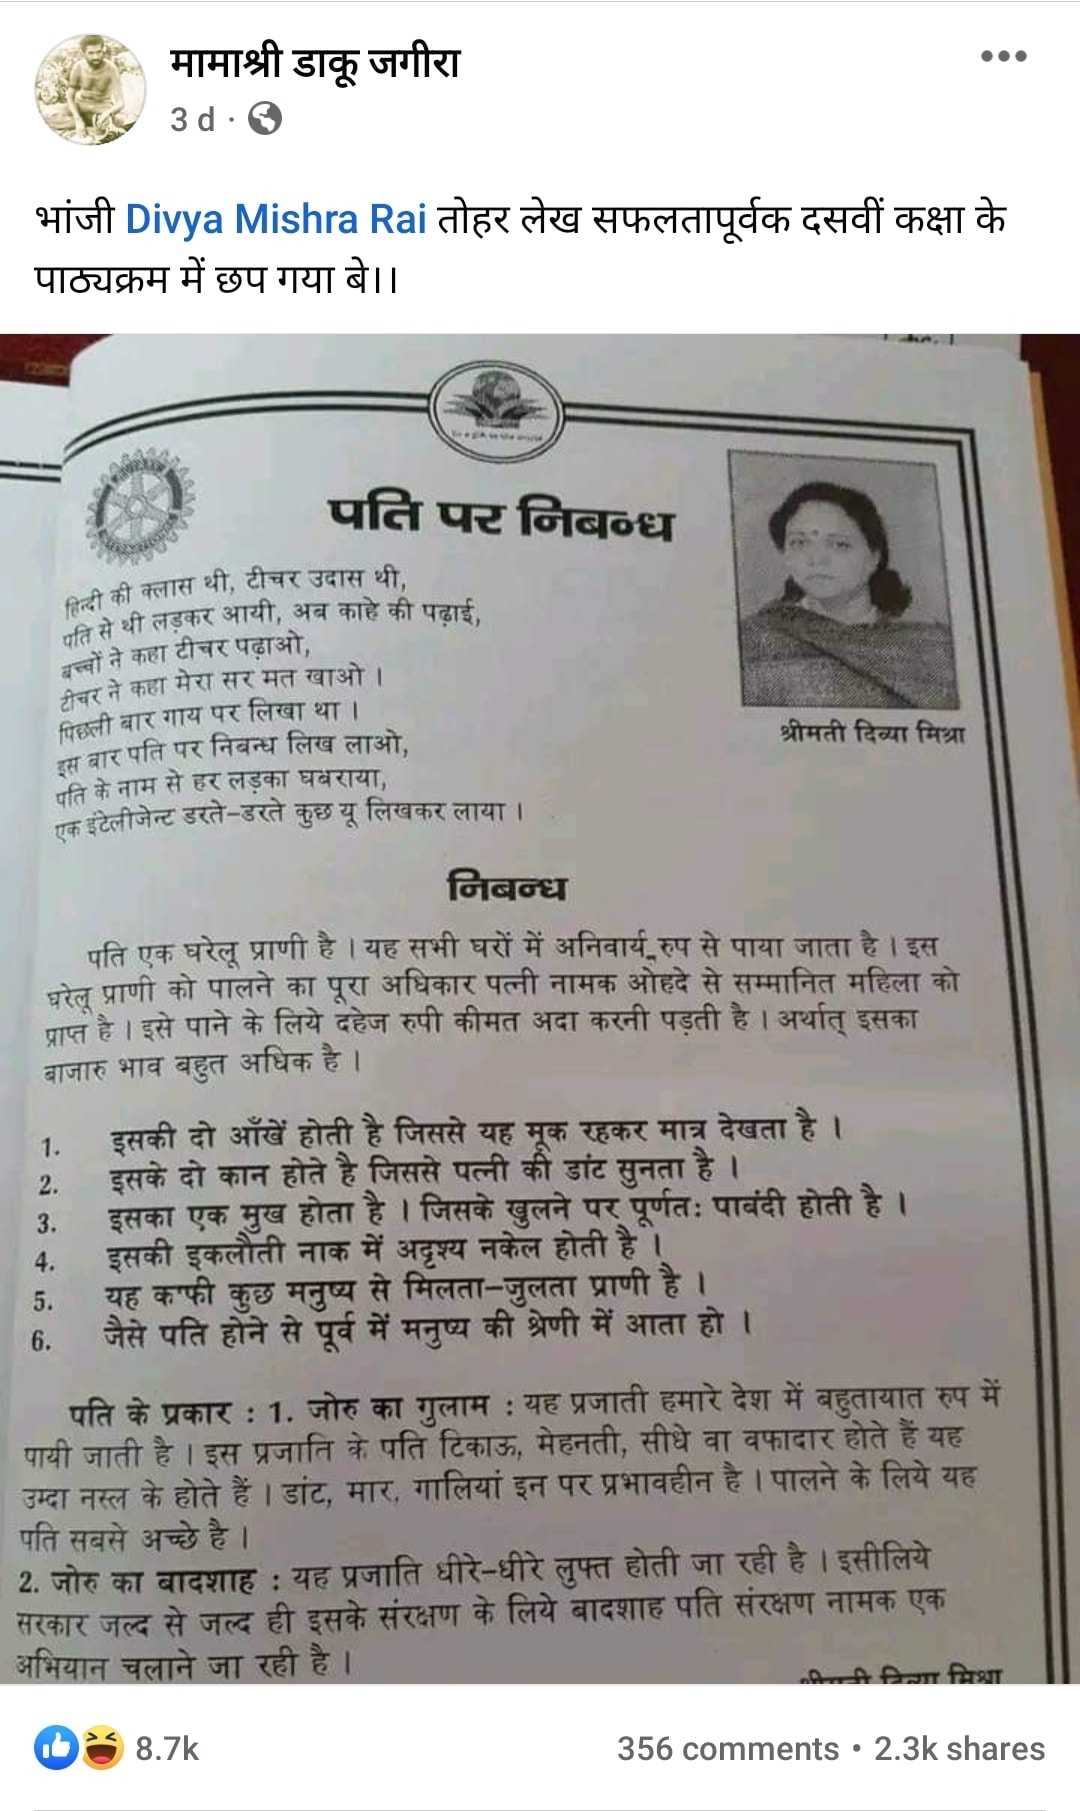 मामाश्री डाकू जगीरा
3 d ·
भांजी Divya Mishra Rai तोहर लेख सफलतापूर्वक दसवीं कक्षा के
पाठ्यक्रम में छप गया बे।।
पति पर निबन्ध
हिन्दी की क्लास थी, टीचर उदास थी,
पति से थी लड़कर आयी, अब काहे की पढ़ाई,
बच्चों ने कहा टीचर पढ़ाओ,
टीचर ने कहा मेरा सर मत खाओ ।
पिछली बार गाय पर लिखा था ।
इस बार पति पर निबन्ध लिख लाओ,
पति के नाम से हर लड़का घबराया,
एक इंटेलीजेन्ट डरते-डरते कुछ यू लिखकर लाया ।
श्रीमती दिव्या मिश्रा
निबन्ध
पति एक घरेलू प्राणी है । यह सभी घरों में अनिवार्य रुप से पाया जाता है । इस
घरेलू प्राणी को पालने का पूरा अधिकार पत्नी नामक ओहदे से सम्मानित महिला को
प्राप्त है । इसे पाने के लिये दहेज रुपी कीमत अदा करनी पड़ती है । अर्थात् इसका
बाजारु भाव बहुत अधिक है ।
1. इसकी दो आँखें होती है जिससे यह मूक रहकर मात्र देखता है ।
2. इसके दो कान होते है जिससे पत्नी की डांट सुनता है ।
3. इसका एक मुख होता है । जिसके खुलने पर पूर्णतः पाबंदी होती है ।
4. इसकी इकलौती नाक में अदृश्य नकेल होती है ।
5. यह क'फी कुछ मनुष्य से मिलता-जुलता प्राणी है ।
6. जैसे पति होने से पूर्व में मनुष्य की श्रेणी में आता हो ।
पति के प्रकार : 1. जोरु का गुलाम : यह प्रजाती हमारे देश में बहुतायात रुप में
पायी जाती है । इस प्रजाति के पति टिकाऊ, मेहनती, सीधे वा वफादार होते हैं यह
उम्दा नस्ल के होते हैं । डांट, मार, गालियां इन पर प्रभावहीन है । पालने के लिये यह
पति सबसे अच्छे है ।
2. जोरु का बादशाह : यह प्रजाति धीरे-धीरे लुफ्त होती जा रही है । इसीलिये
सरकार जल्द से जल्द ही इसके संरक्षण के लिये बादशाह पति संरक्षण नामक एक
अभियान चलाने जा रही है ।
श्रीमती दिव्या मिश्रा
8.7k
356 comments • 2.3k shares